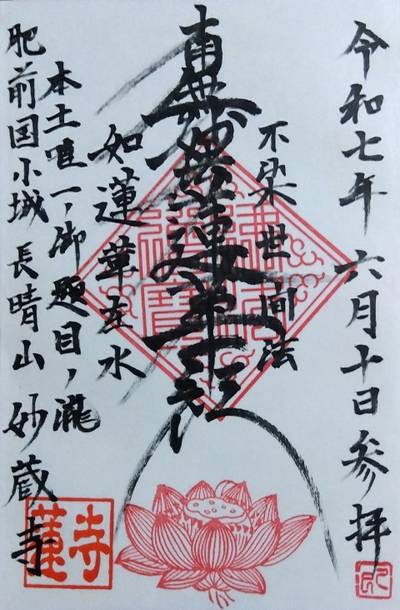 令和七年六月十日参拝
不染世間法
南無妙法蓮華経
如蓮華在水
本土唯一、御題目、瀧
肥前国小城 長晴山 妙蔵寺